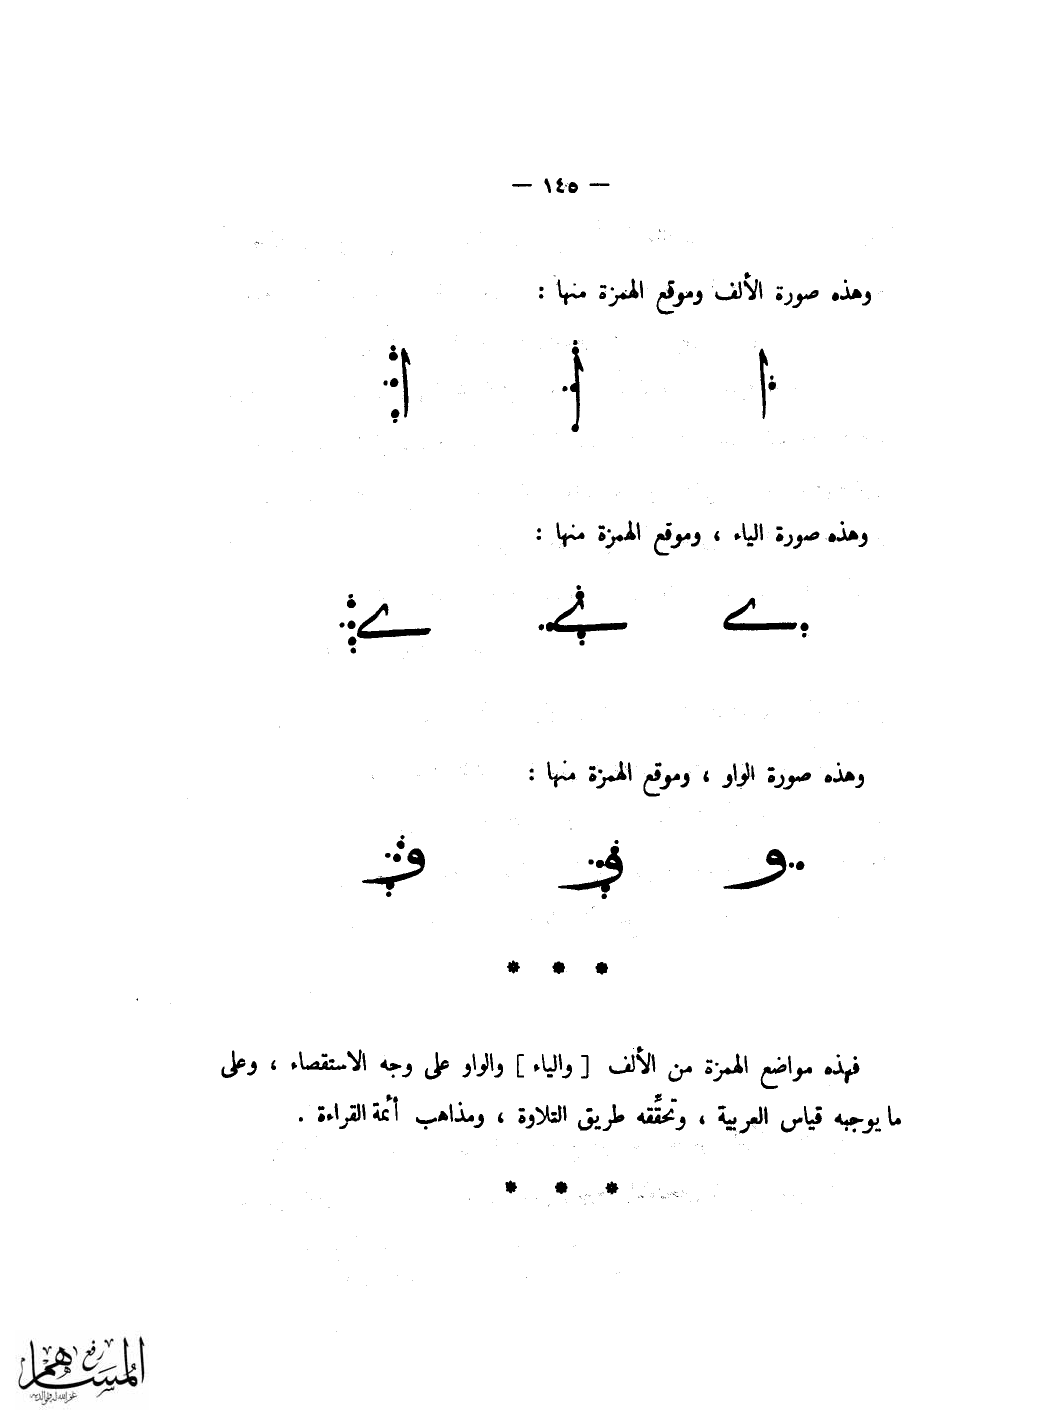 — ١٤٥ —
وهذه صورة الألف وموقع الهمزة منها :
وهذه صورة الياء ، وموقع الهمزة منها :
وهذه صورة الواو ، وموقع الهمزة منها :
* * *
فهذه مواضع الهمزة من الألف [ والياء ] والواو على وجه الاستقصاء ، وعلى
ما يوجبه قياس العربية ، وتحقِّقه طريق التلاوة ، ومذاهب أئمة القراءة .
* * *
رفع
المساهم
غفر الله له ولوالديه